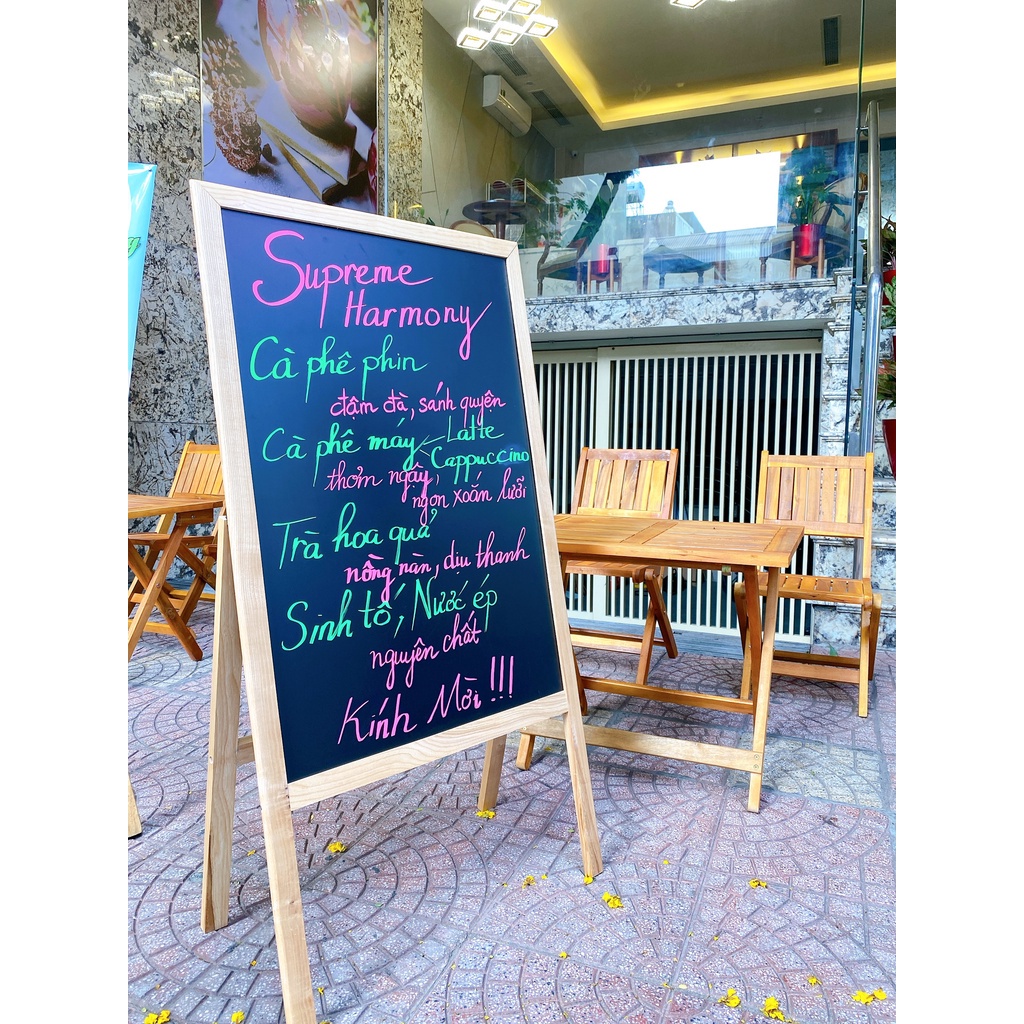 Supreme
Harmony
Cà phê phin
đậm đà, sánh quyện
Cà phê máy Latte
Cappuccino
thơm ngậy,
ngon xoắn lưỡi
Trà hoa quả
nồng nàn, dịu thanh
Sinh tố, Nước ép
nguyên chất
Kính Mời !!!